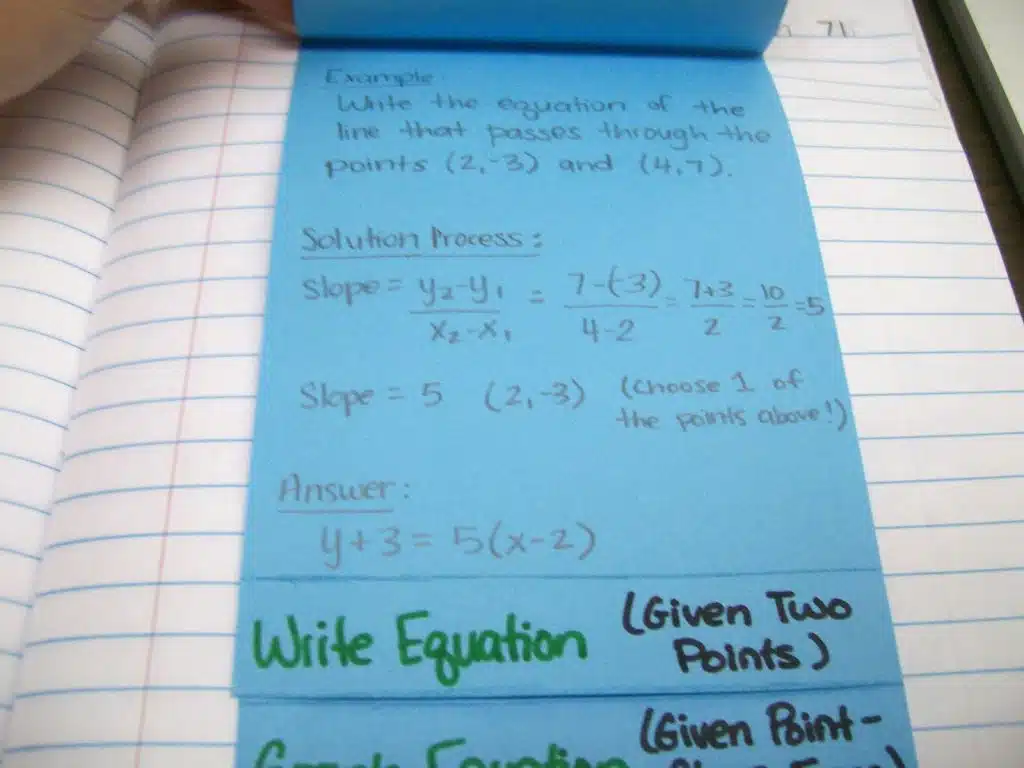 71
Example
Write the equation of the
line that passes through the
points (2,-3) and (4,7).
Solution Process:
Slope = y₂-y₁ / x₂-x₁ = 7-(-3) / 4-2 = 7+3 / 2 = 10 / 2 = 5
Slope = 5 (2,-3) (Choose 1 of
the points above!)
Answer:
y+3 = 5(x-2)
Write Equation (Given Two
Points)
(Given Point-
Graph Equation